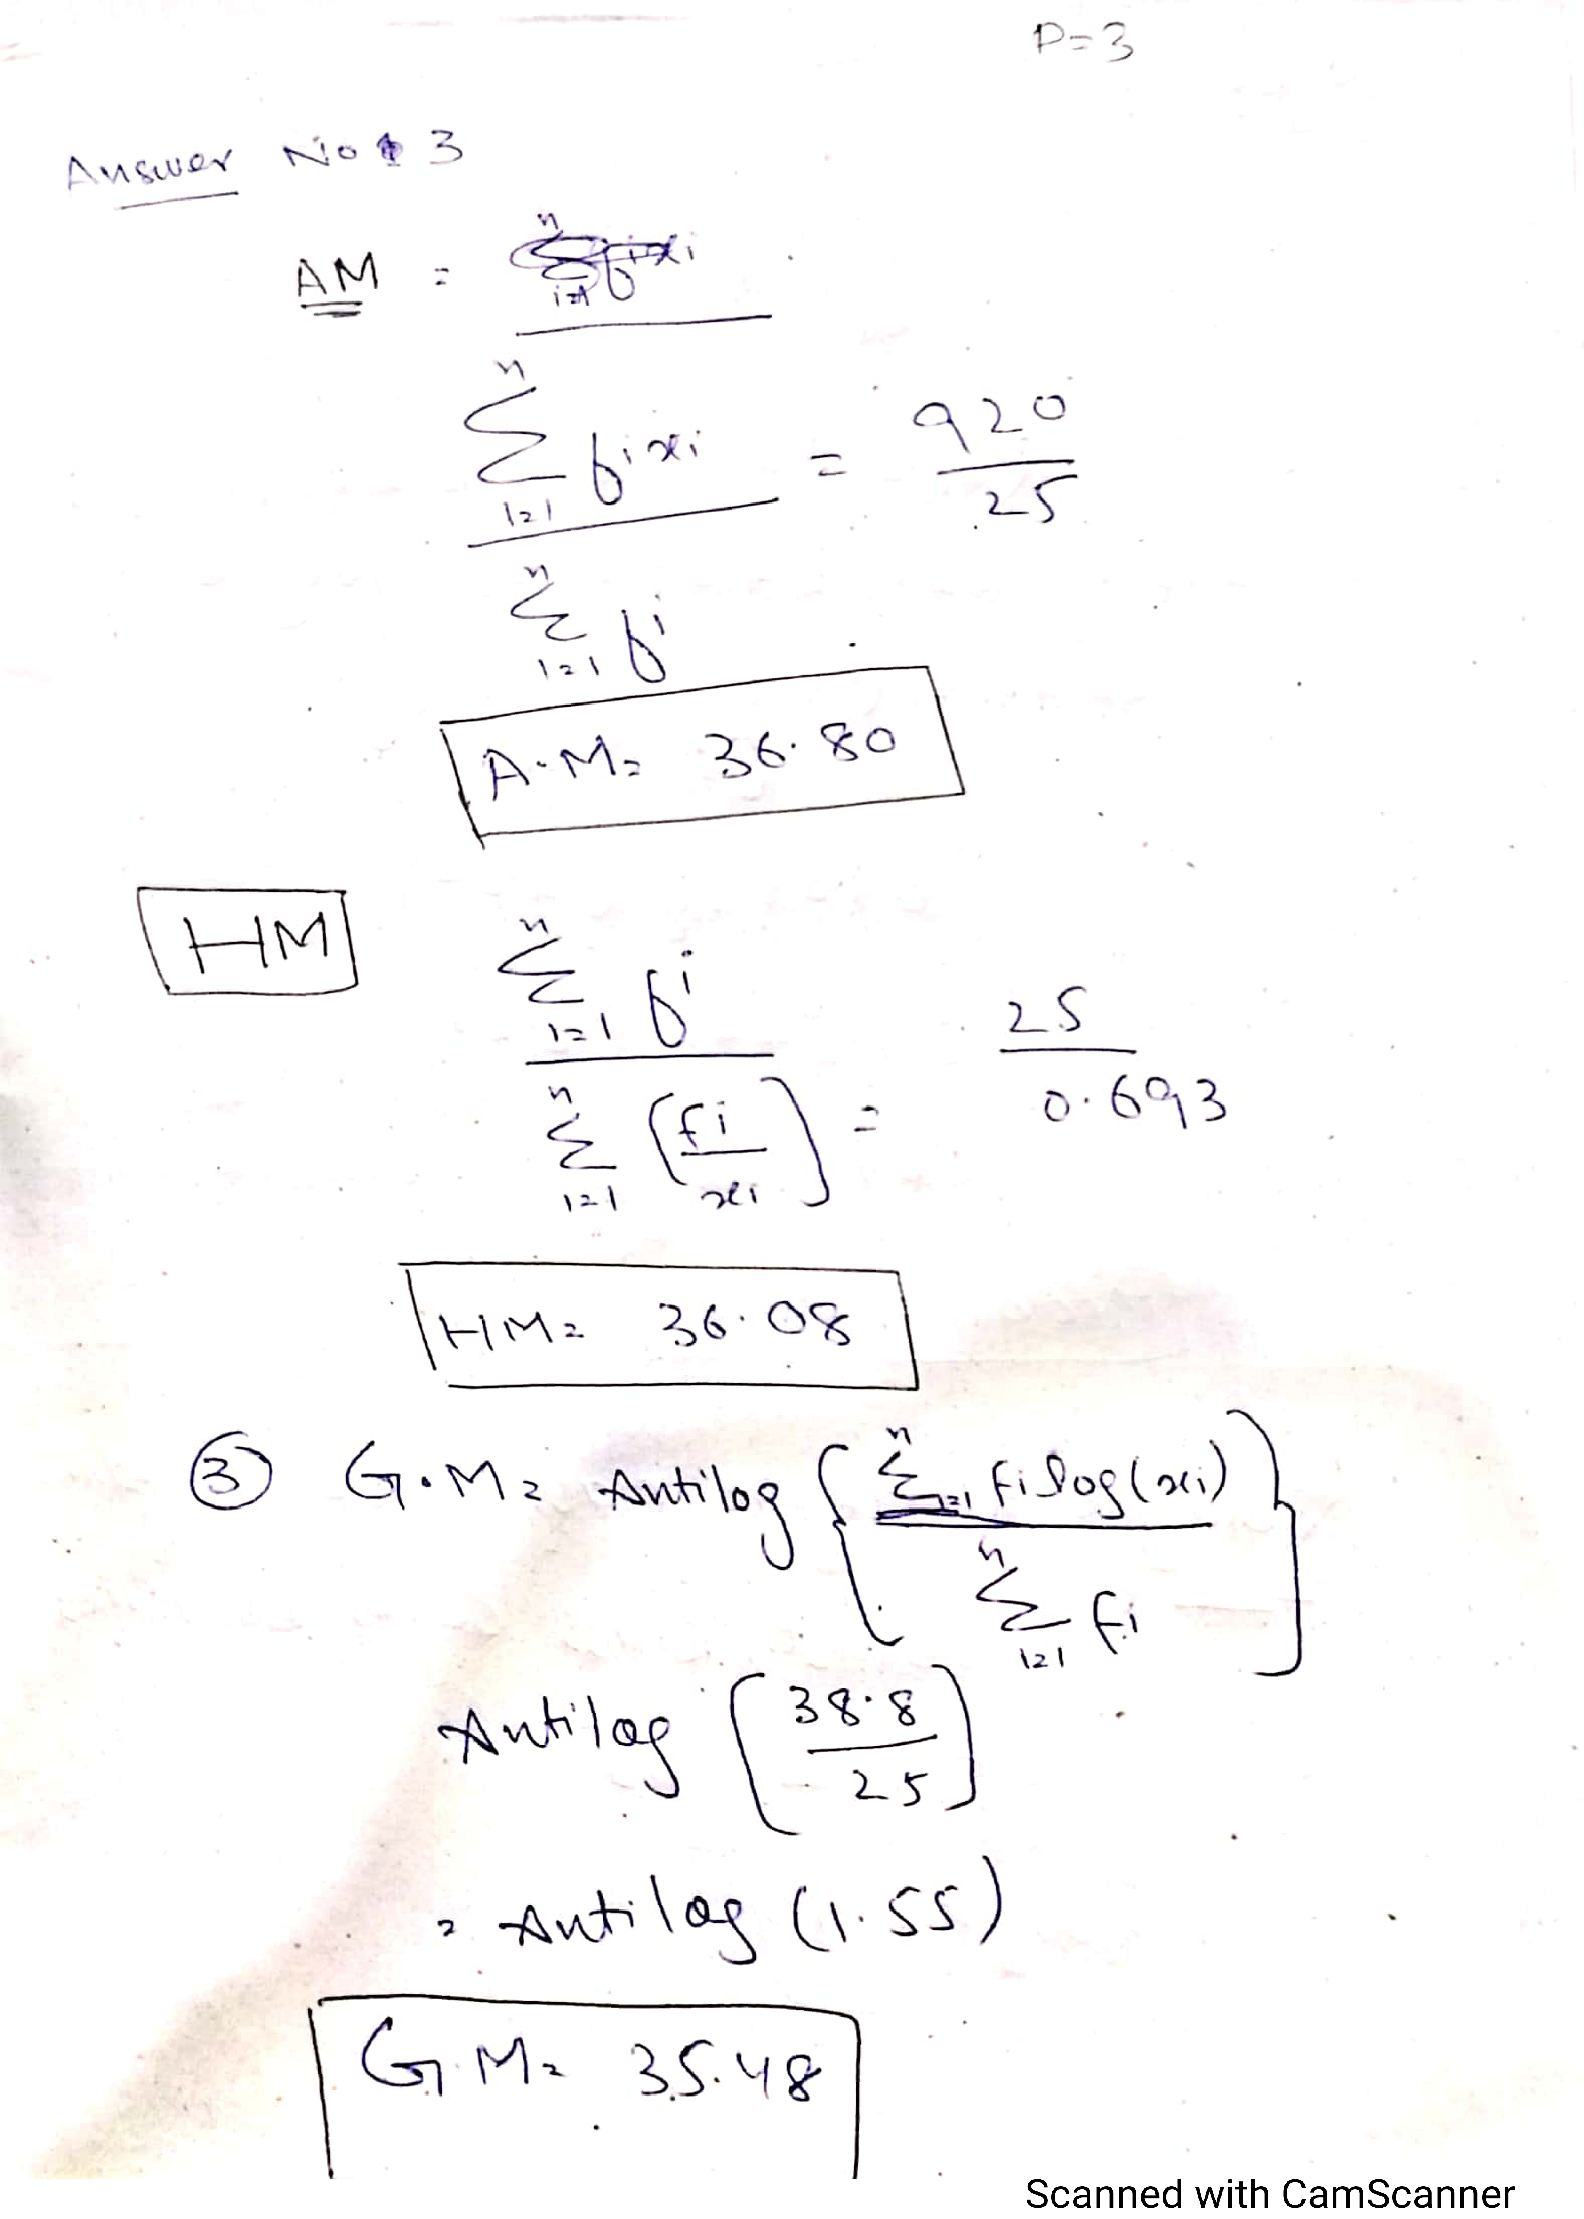 P=3
Answer No 3
AM =
n
∑ fixi = 920/25
i=1
n
∑ fi
i=1
A.M= 36.80
HM
n
∑ fi
i=1
n
∑ (fi/xi) = 25/0.693
i=1
HM= 36.08
③ G.M= Antilog { n∑i=1 fi log(xi) / n∑i=1 fi }
Antilog (38.8/25)
= Antilog (1.55)
G.M= 35.48
Scanned with CamScanner